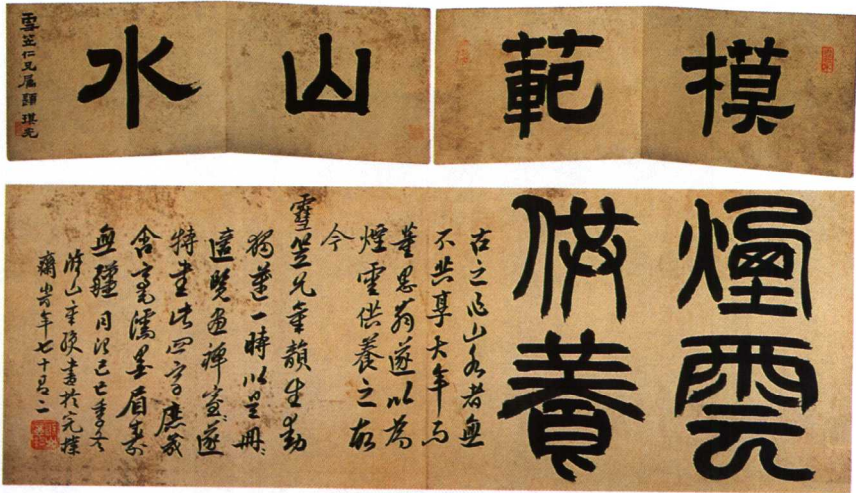 模範
山水
雪笠仁兄屬題 琪光
煙雲
供養
古之作山水者無
不共享大年而
董思翁遂以為
煙雲供養之故
今
雪笠兄氣韻生動
獨一時以是冊
遠畫禪室遂
特書此四字庶幾
含毫濡墨眉壽
無疆同治己巳季冬
山書於完樸
齋時年七十有二